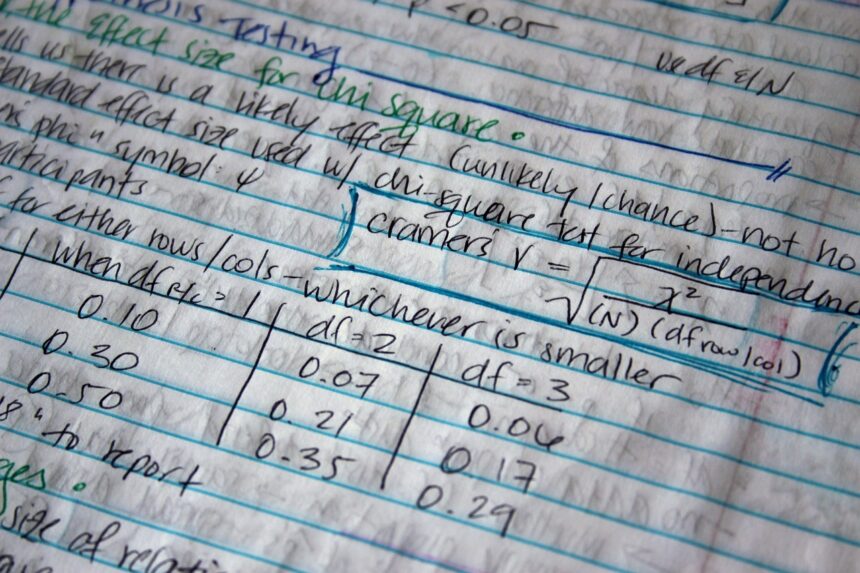 p < 0.05
Testing
use df & N
effect size for chi square.
ells us there is a likely effect (unlikely / chance) - not ho
standard effect size used w/ chi-square test for independenc
phi" symbol: φ
cramers' V = √ x² / (N) (df row/col)
articipants
for either rows/cols - whichever is smaller
when df r/c = 1 df = 2 df = 3
0.10 0.07 0.06
0.30 0.21 0.17
0.50 0.35 0.29
" to report
ges.
size of relati